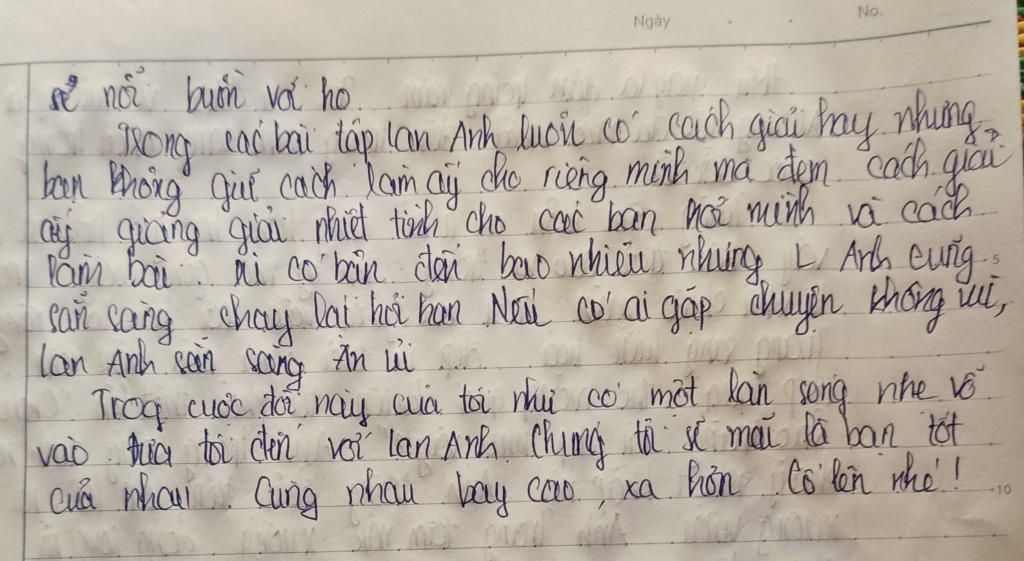 Ngày
No.
sẻ nỗi buồn với họ.
Trong các bài tập Lan Anh luôn có cách giải hay nhưng
bạn không giữ cách làm ấy cho riêng mình mà đem cách giải
ấy giảng giải nhiệt tình cho các bạn nơi mình và cách
làm bài. Dù có bận đến bao nhiêu nhưng L Anh cũng
sẵn sàng chạy lại hỏi han. Nếu có ai gặp chuyện không vui,
Lan Anh sẵn sàng an ủi ...
Trog cuộc đời này của tôi như có một làn sóng nhẹ vỗ
vào đưa tôi đến với Lan Anh. Chúng tôi sẽ mãi là bạn tốt
của nhau. Cùng nhau bay cao, xa hơn. Cố lên nhé!